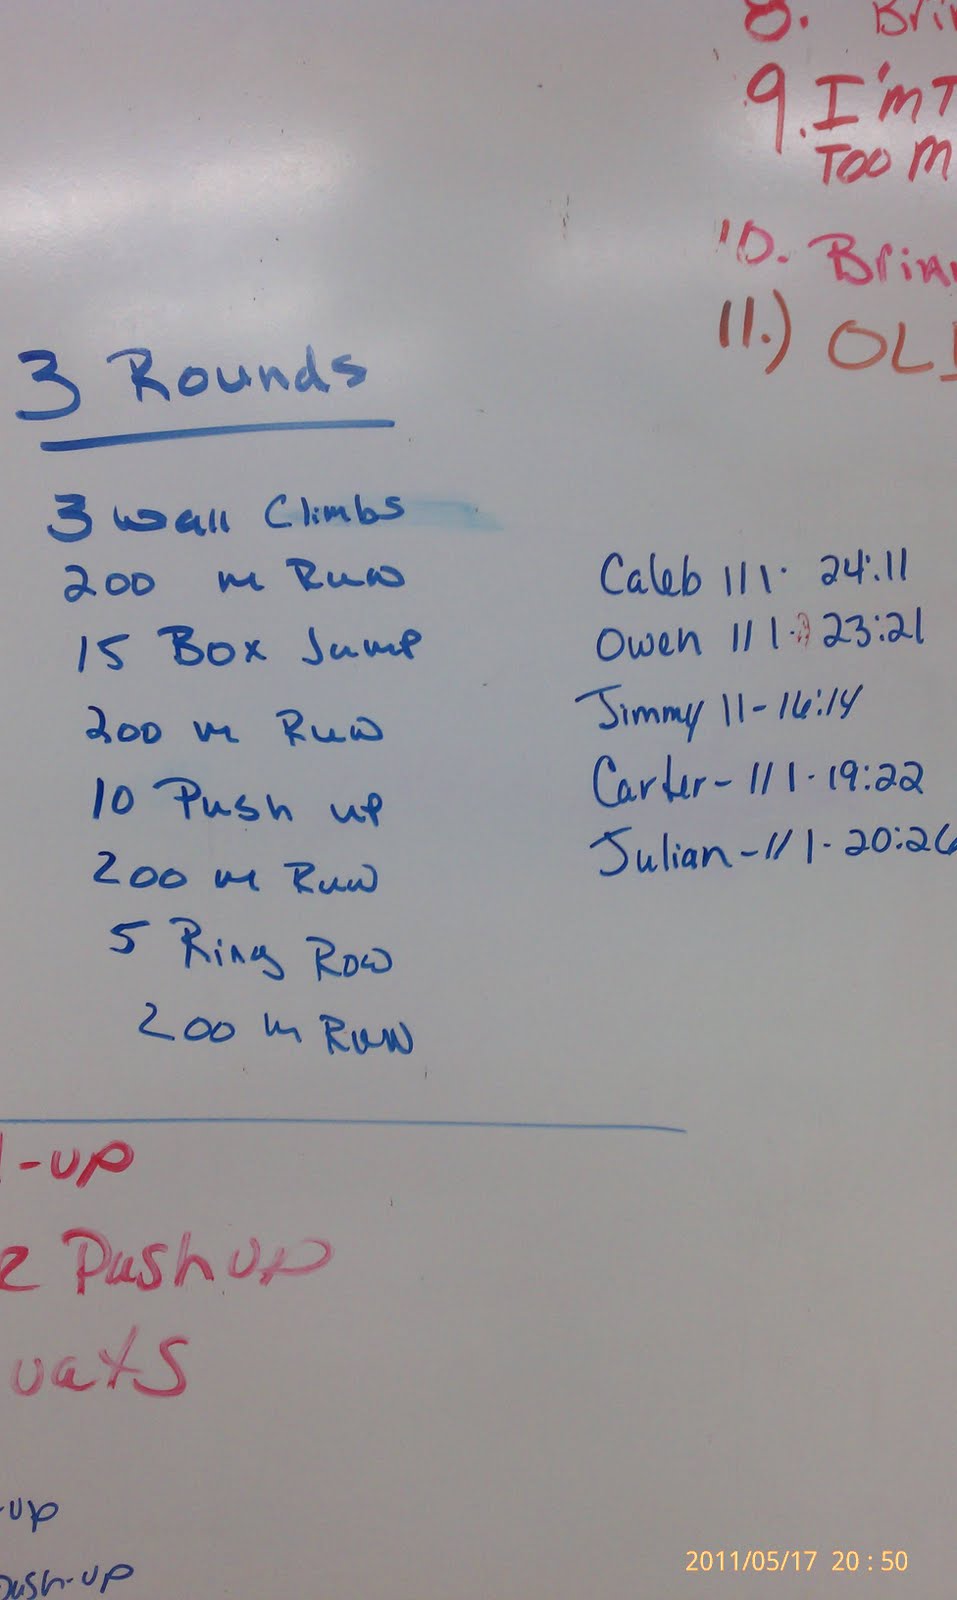 8. Brin
9. I'm T
TOO M
10. Brian
11.) OLD
3 Rounds
3 Wall Climbs
200 m Run
15 Box Jump
200 m Run
10 Push up
200 m Run
5 Ring Row
200 m Run
Caleb 111. 24:11
Owen 111. 23:21
Jimmy 11-16:14
Carter- 111. 19:22
Julian-111. 20:26
l-up
e Push up
uats
-up
push-up
2011/05/17 20:50